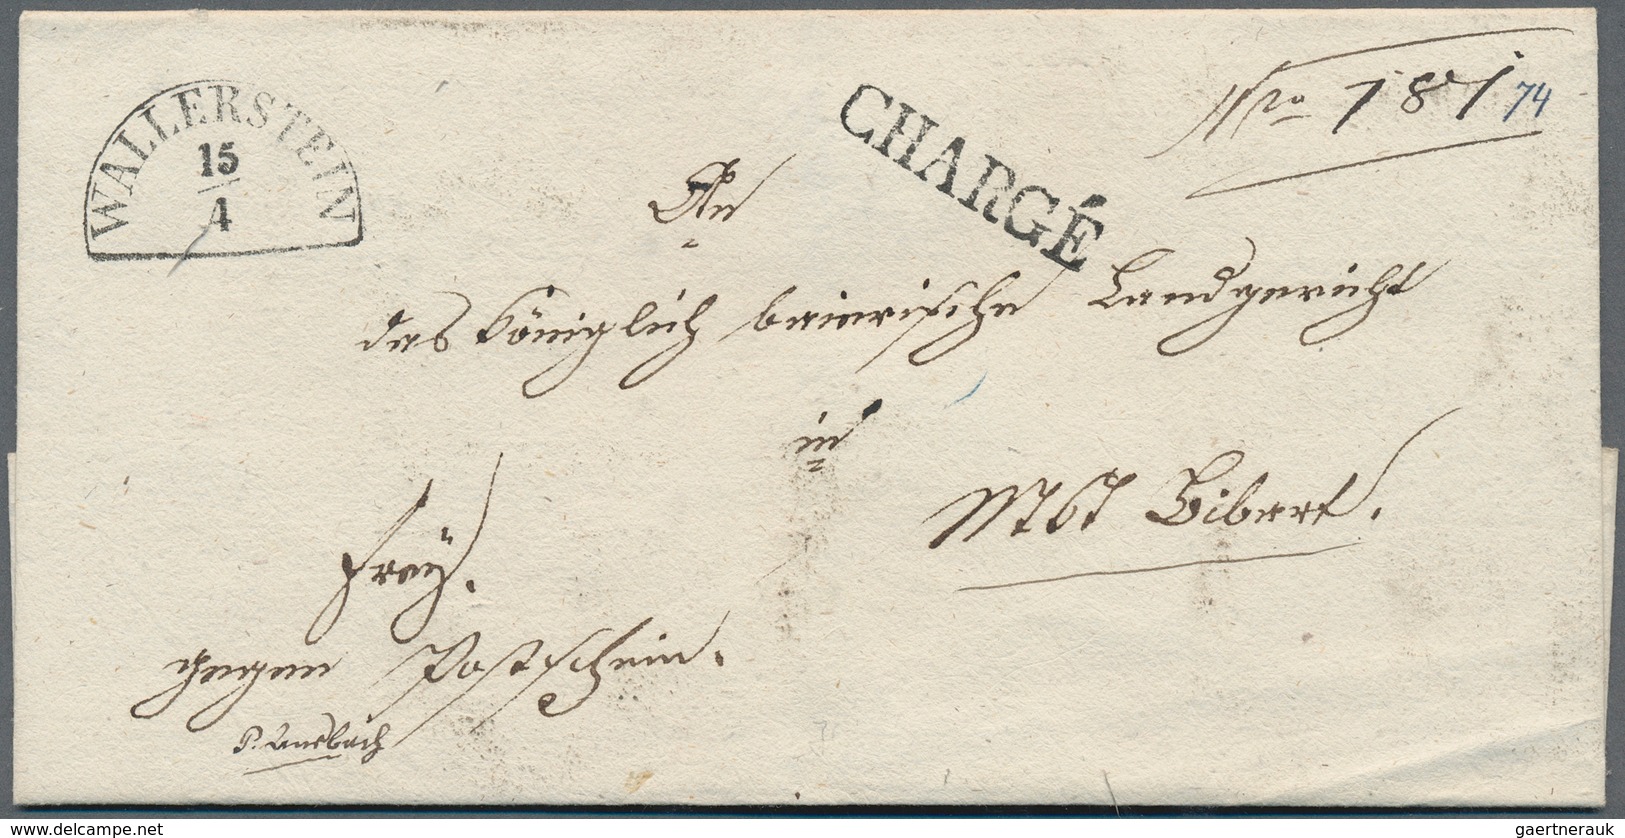 WALLERSTEIN
15
4
CHARGÉ
Nro 787
74
An
das königlich baierische Landgericht
in
Mkt Bibert.
frey.
gegen Postschein.
p. Ansbach
www.delcampe.net
gaertnerauk